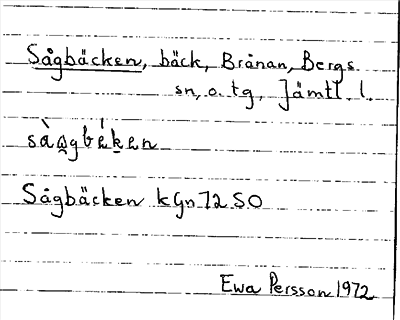 Sågbäcken, bäck, Brånan, Bergs
sn, o. tg, Jämtl. l.
Sågbäcken kGn 72 SO
Ewa Persson 1972